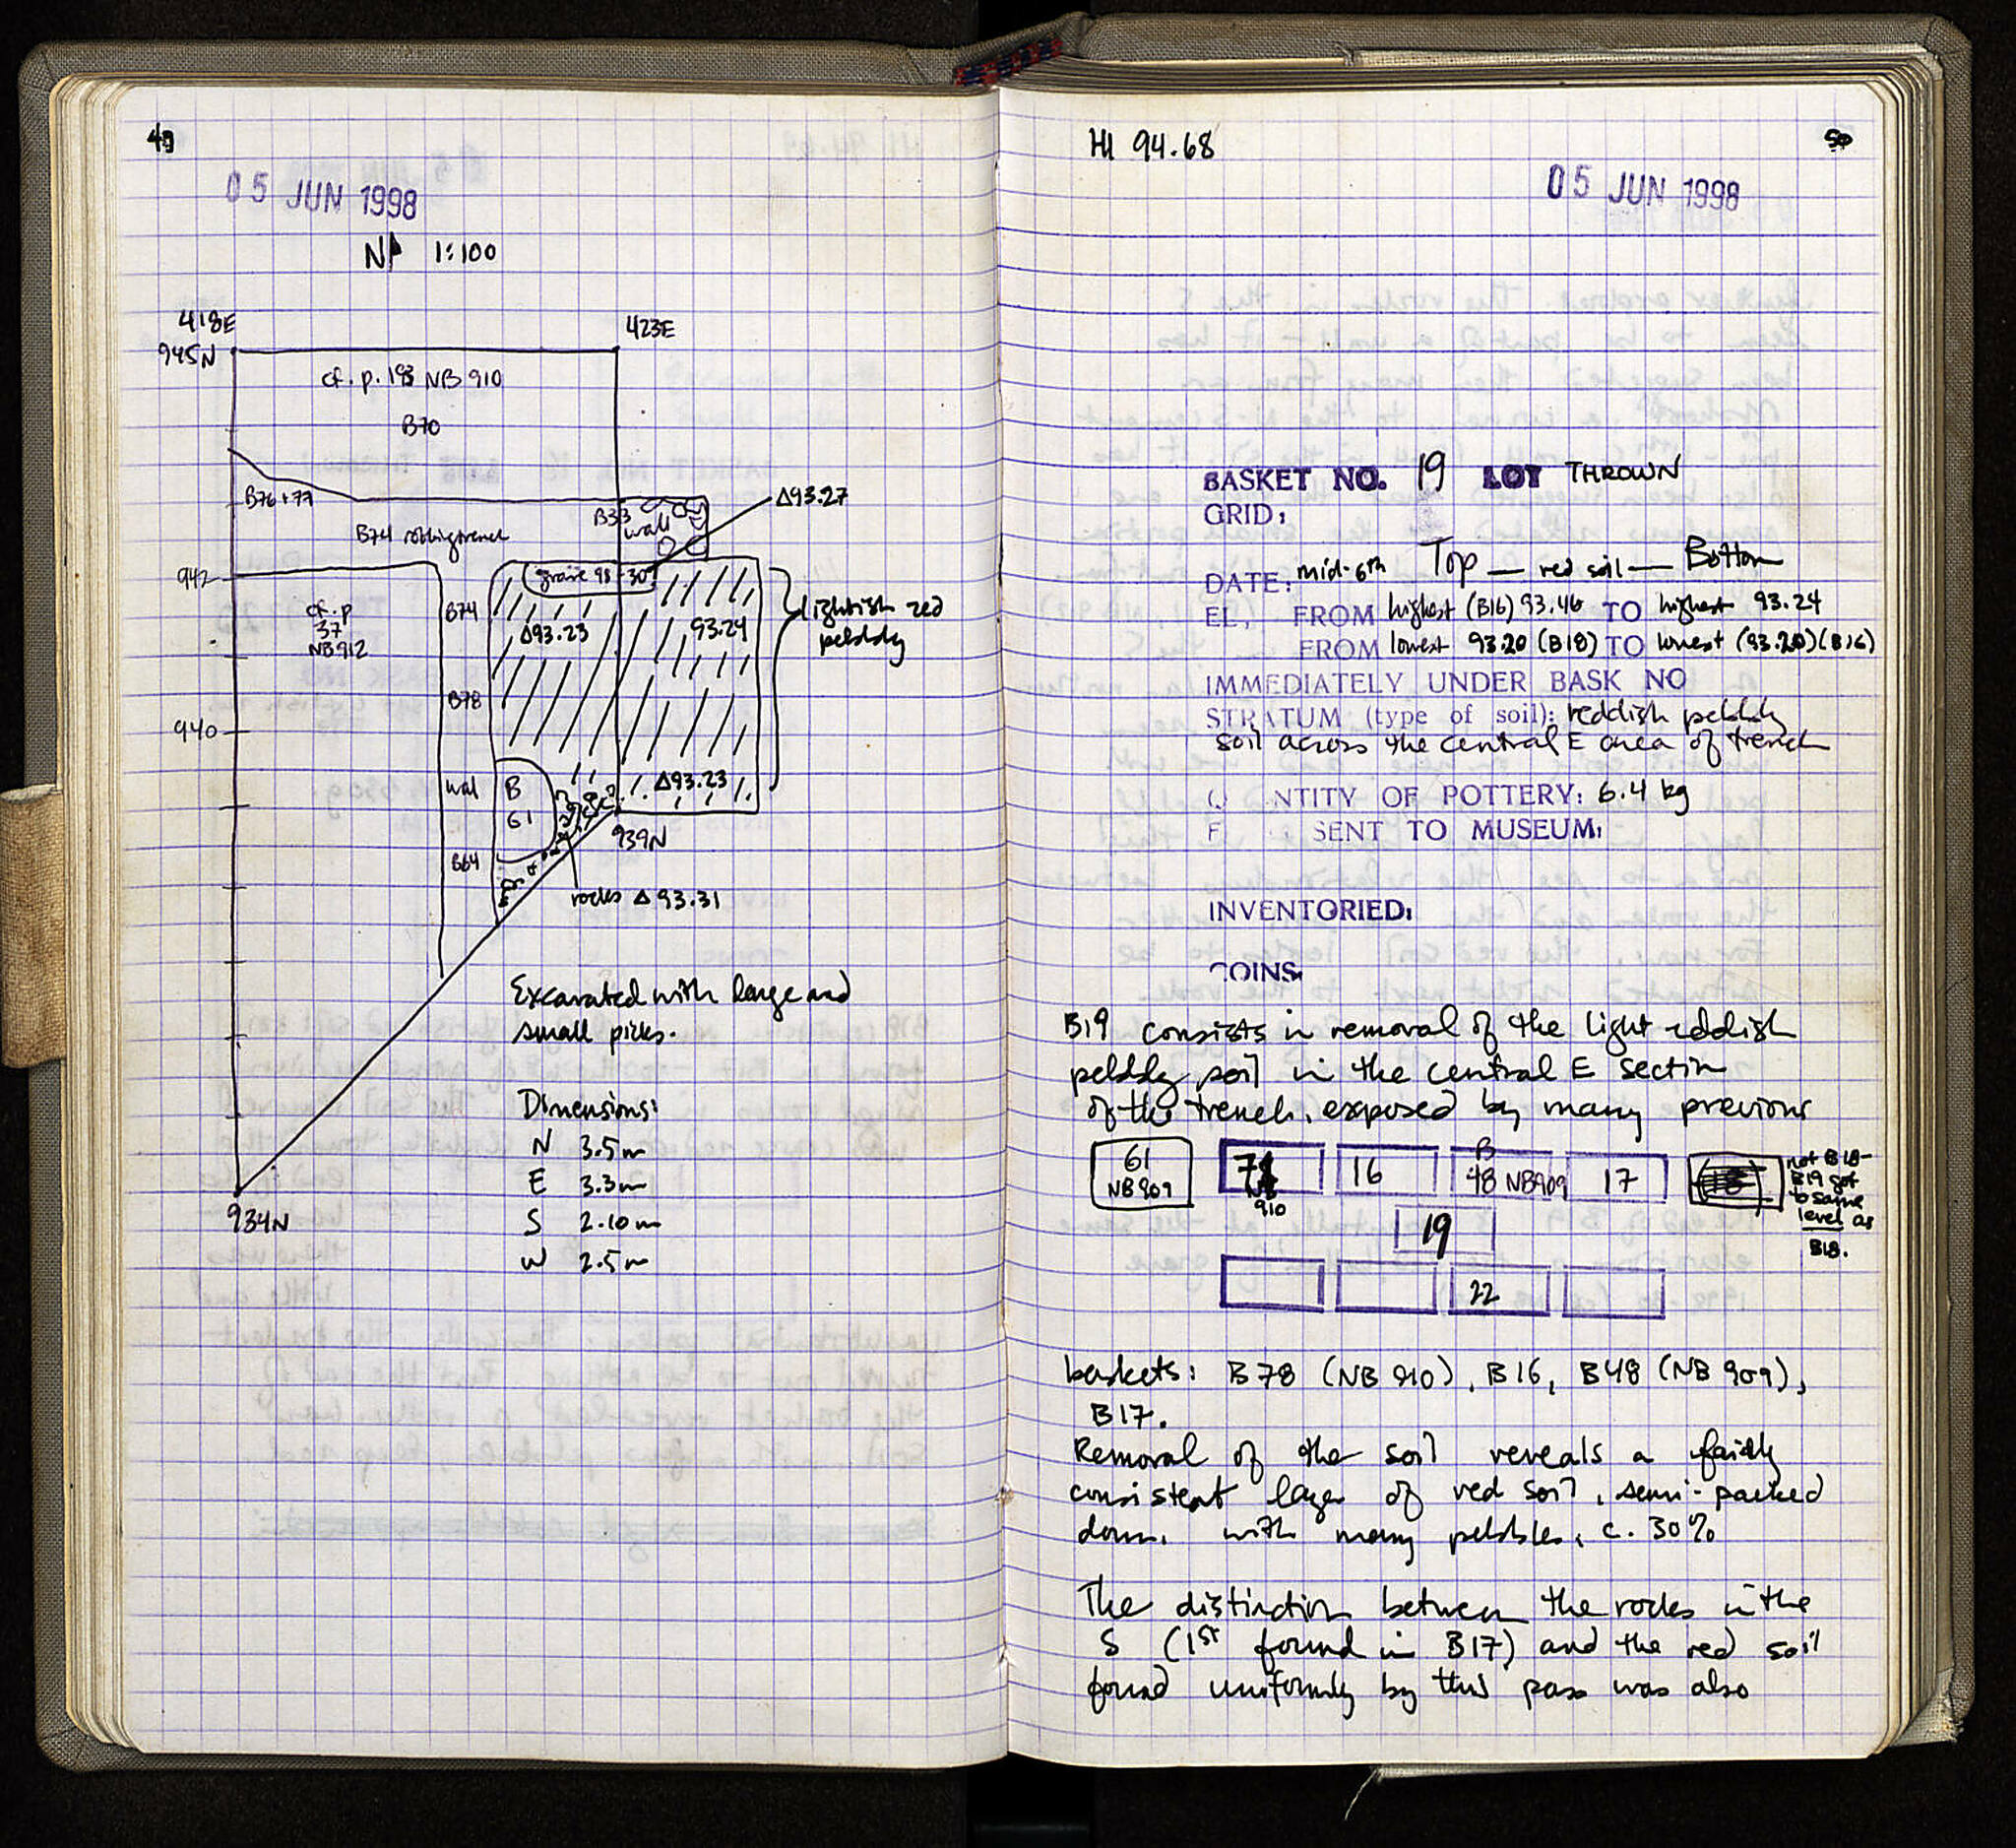 49
05 JUN 1998
N 1:100
418E
423E
945N
cf. p. 193 NB 910
B70
B76+77
B33
wall
Δ93.27
B74 robbing trench
942
grave 98-30
cf. p
37
NB912
B74
Δ93.23
93.24
lightish red
pebbly
B78
940
wall
B
61
Δ93.23
939N
B64
rocks Δ93.31
Excavated with large and
small picks.
Dimensions:
N 3.5m
E 3.3m
S 2.10m
W 2.5m
934N
H1 94.68
50
05 JUN 1998
BASKET NO. 19 LOT THROWN
GRID:
DATE: mid-6th Top — red soil — Bottom
EL, FROM highest (B16) 93.46 TO highest 93.24
FROM lowest 93.20 (B18) TO lowest (93.20)(B16)
IMMEDIATELY UNDER BASK NO
STRATUM (type of soil): reddish pebbly
soil across the central E area of trench
NTITY OF POTTERY: 6.4 kg
F SENT TO MUSEUM:
INVENTORIED:
COINS
B19 consists in removal of the light reddish
pebbly soil in the central E section
of the trench, exposed by many previous
61
NB909
NB
910
16
B
48 NB909
17
not B18-
B19 got
to same
level as
B18.
19
22
baskets: B78 (NB 910), B16, B48 (NB 909),
B17.
Removal of the soil reveals a fairly
consistent layer of red soil, semi-packed
down, with many pebbles, c. 30%
The distinction between the rocks in the
S (1st found in B17) and the red soil
found uniformly by this pass was also